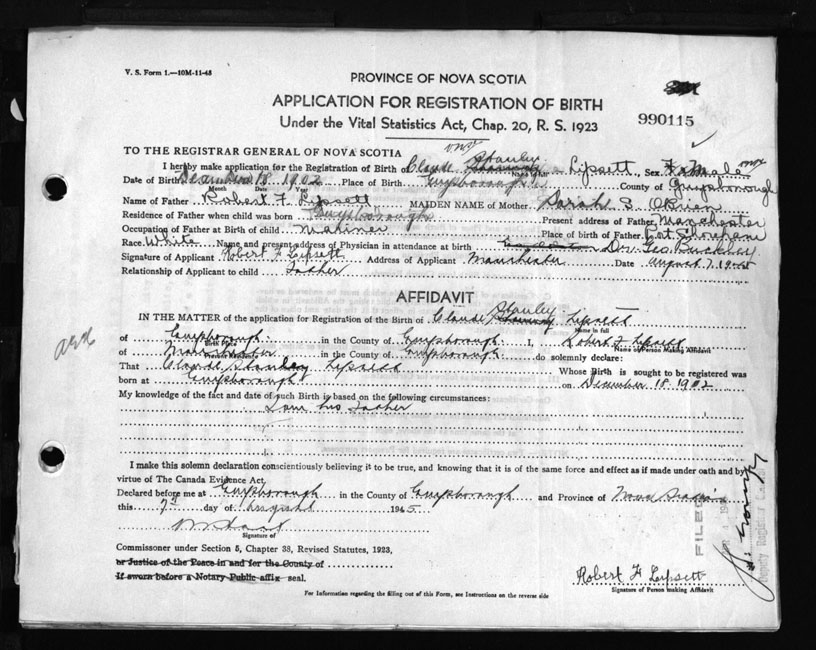 V. S. Form 1.—10M-11-43
PROVINCE OF NOVA SCOTIA
APPLICATION FOR REGISTRATION OF BIRTH
990115
Under the Vital Statistics Act, Chap. 20, R. S. 1923
TO THE REGISTRAR GENERAL OF NOVA SCOTIA
I hereby make application for the Registration of Birth of Claude Stanley Lipsett, Sex Male
Name in full
Date of Birth December 18 1902 Place of Birth Guysborough County of Guysborough
Month Date Year
Name of Father Robert F Lipsett MAIDEN NAME of Mother Sarah S. O'Brien
Residence of Father when child was born Guysborough Present address of Father Manchester
Occupation of Father at Birth of child Mariner Place of birth of Father Port Shoreham
Race White Name and present address of Physician in attendance at birth Dr. Geo Buckley
Signature of Applicant Robert F Lipsett Address of Applicant Manchester Date August 7, 1945
Relationship of Applicant to child father
AFFIDAVIT
IN THE MATTER of the application for Registration of the Birth of Claude Stanley Lipsett
Name in full
of Guysborough in the County of Guysborough I, Robert F Lipsett
Birth Place
Name of Person Making Affidavit
of Manchester in the County of Guysborough do solemnly declare:
Present Residence
That Claude Stanley Lipsett Whose Birth is sought to be registered was
born at Guysborough on December 18 1902
My knowledge of the fact and date of such Birth is based on the following circumstances:
I am his father
I make this solemn declaration conscientiously believing it to be true, and knowing that it is of the same force and effect as if made under oath and by
virtue of The Canada Evidence Act.
Declared before me at Guysborough in the County of Guysborough and Province of Nova Scotia
this 7th day of August 1945.
Signature of
Commissioner under Section 5, Chapter 38, Revised Statutes, 1923,
or Justice of the Peace in and for the County of
If sworn before a Notary Public affix seal.
Robert F Lipsett
Signature of Person making Affidavit
For Information regarding the filling out of this Form, see Instructions on the reverse side
FILED
Deputy Registrar General